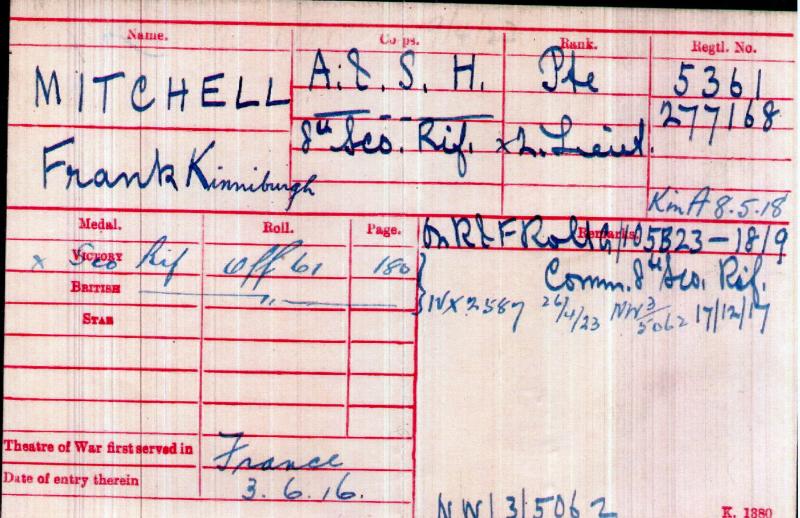 Name. Corps. Rank. Regtl. No.
MITCHELL A. & S. H. Pte 5361
277168
8th Sco. Rif. x 2. Lieut.
Frank Kinniburgh
K in A 8.5.18
Medal. Roll. Page. Remarks.
On R & F Roll
5B23-18/9
VICTORY x Sco Rif Off 61 180
Comm. 8th Sco. Rif.
BRITISH
NX2587 26/4/23 NW3/5062 17/12/17
STAR
Theatre of War first served in France
Date of entry therein 3.6.16.
NW/3/5062
K. 1380